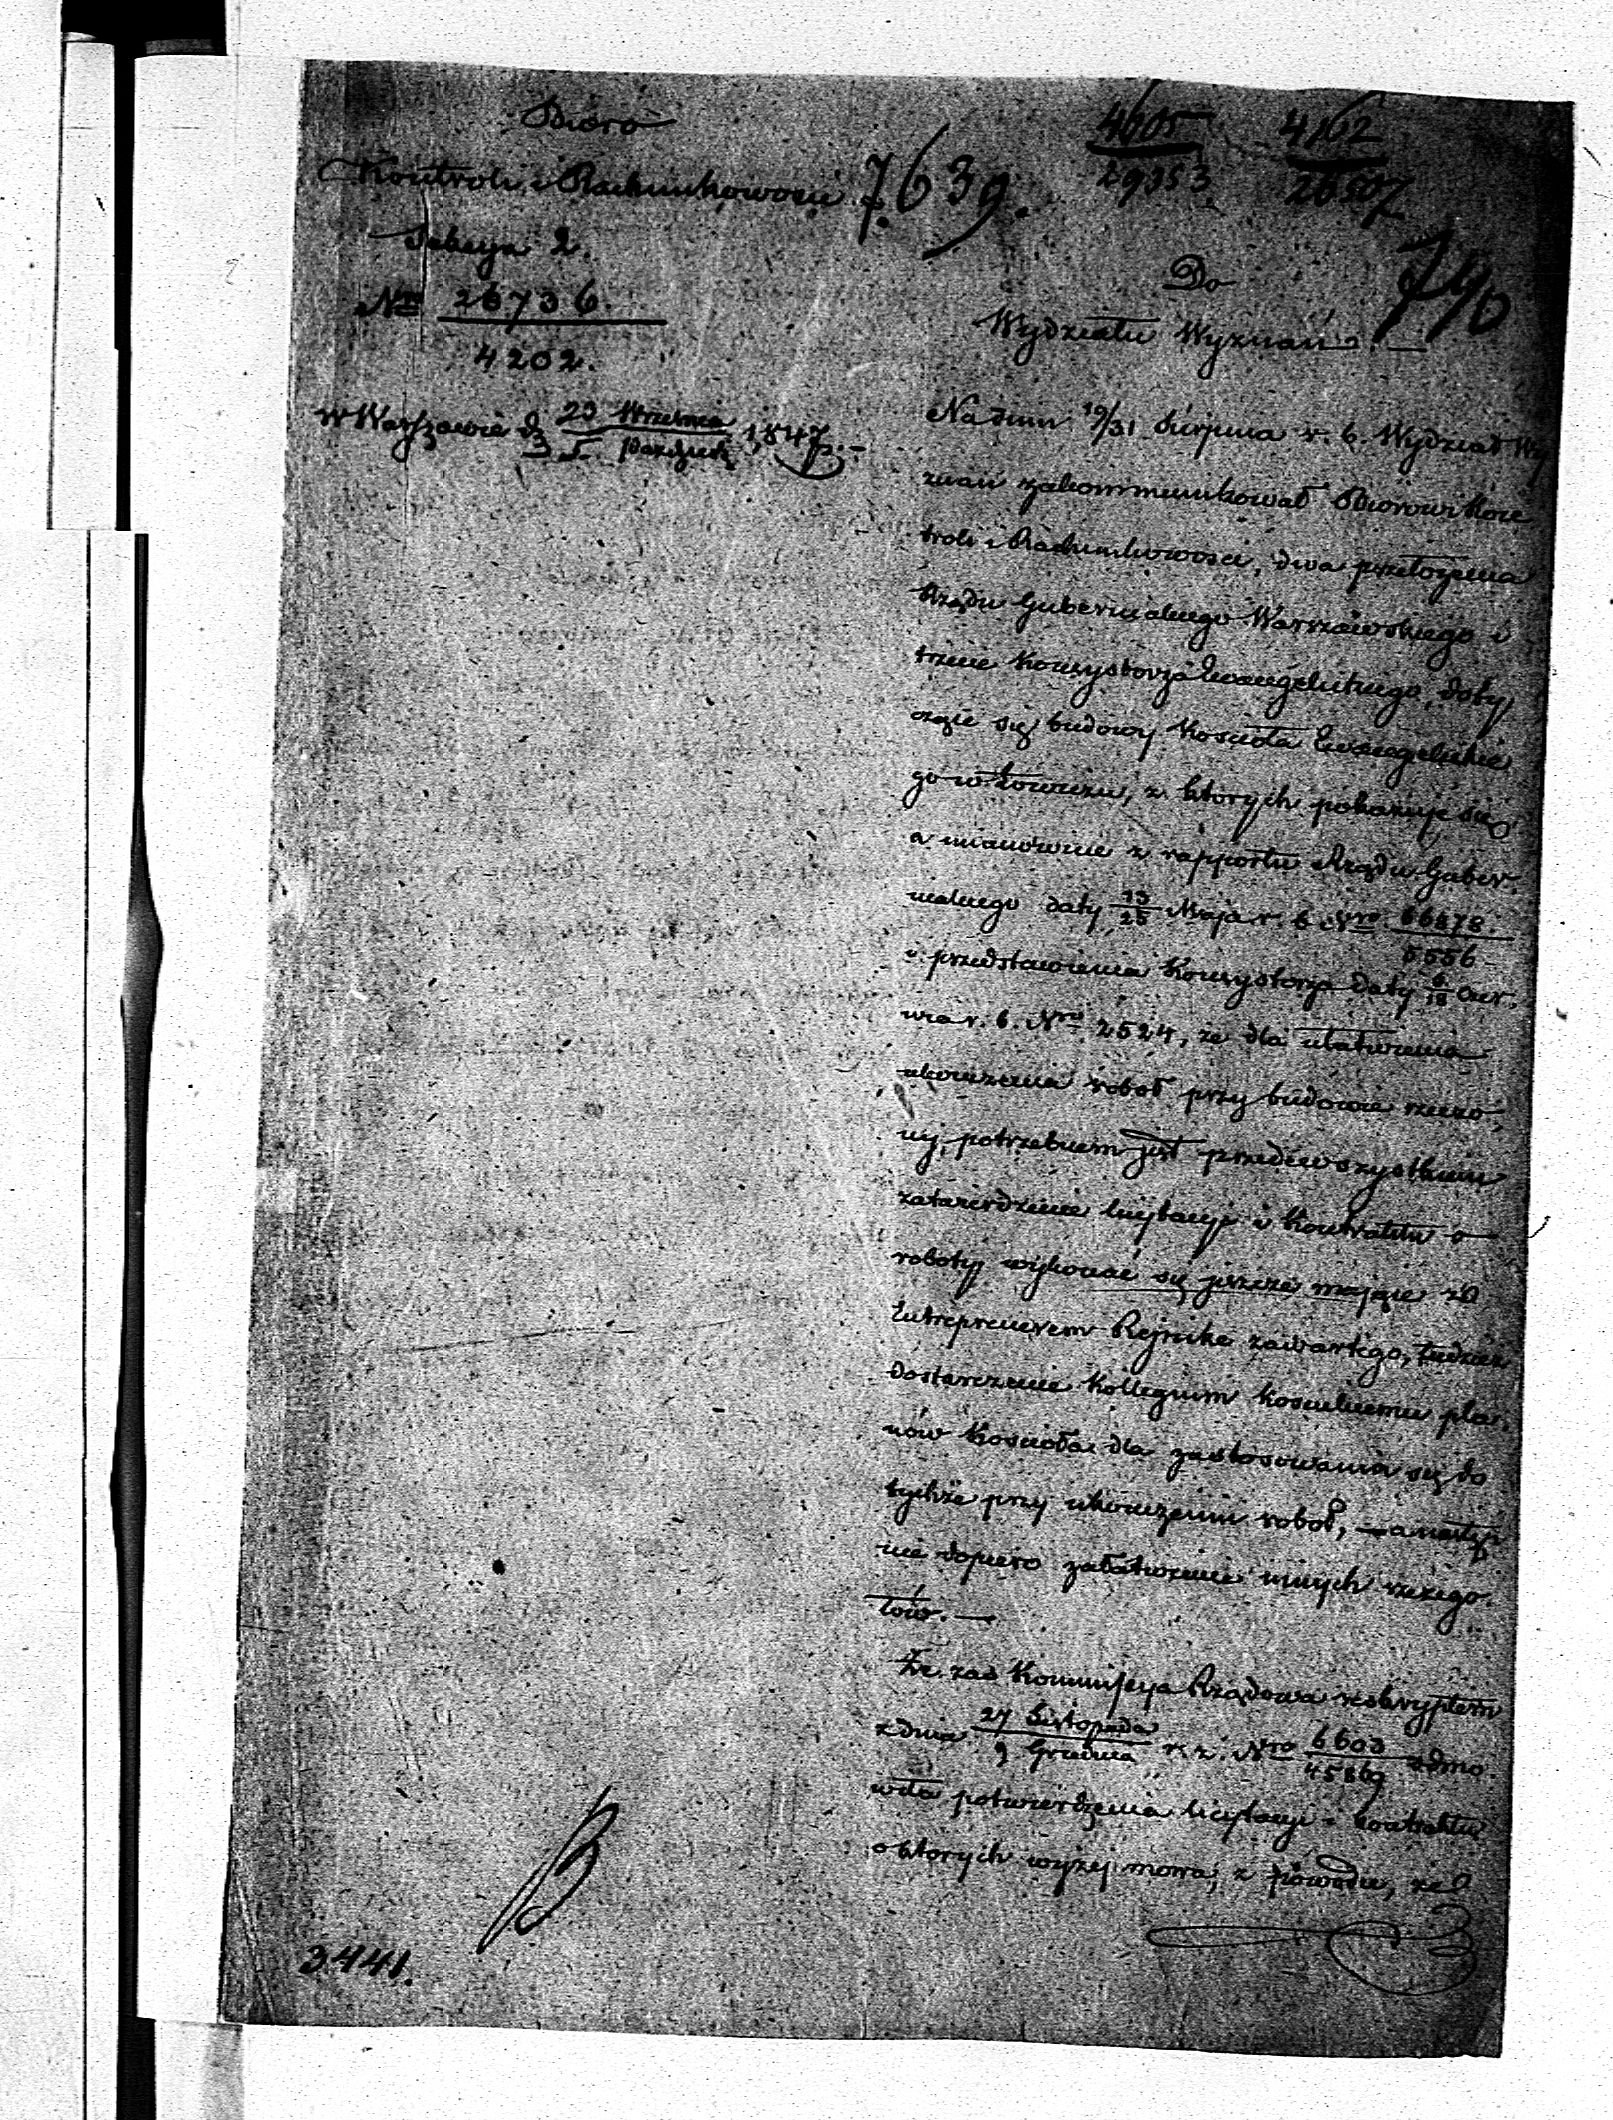 Bióro
Kontroli i Rachunkowości
Sekcya 2.
Nro 26736.
4202.
w Warszawie d. 23 Września 1847.
5 Paździer.
7.639.
4605
29353
4162
26507
740
Do
Wydziału Wyznań. —
Na dniu 19/31 Sierpnia r. b. Wydział Wy
znań zakommunikował Biórowi Kon
troli i Rachunkowości, dwa przełożenia
Rządu Gubernialnego Warszawskiego i
trzecie Konsystorza Ewangelickiego, doty
czące się budowy Kościoła Ewangelickie
go w Łowiczu, z których pokazuje się,
a mianowicie z rapportu Rządu Guber.
nialnego daty 13/25 Maja r. b. Nro 66878.
5556
i przedstawienia Konsystorza daty 6/18 Czer.
wca r. b. Nro 2524, że dla ułatwienia
ukończenia robót przy budowie rzeczo,
nej, potrzebnem jest przedewszystkiem
zatwierdzenie licytacyi i Kontraktu o
roboty wykonać się jeszcze mające z
Entreprenerem Rejnike zawartego, tudzież
dostarczenie Kollegium kościelnemu pla.
nów Kościoła dla zastosowania się do
tychże przy ukończeniu robót, a następ
nie dopiero załatwienie innych szczegó.
łów. —
Że zaś Kommissya Rządowa reskryptem
z dnia 27 Listopada r. z. Nro 6603 odmó.
9 Grudnia 45869
wiła potwierdzenia licytacyi i kontraktu
o których wyżej mowa, z powodu, że
3441.